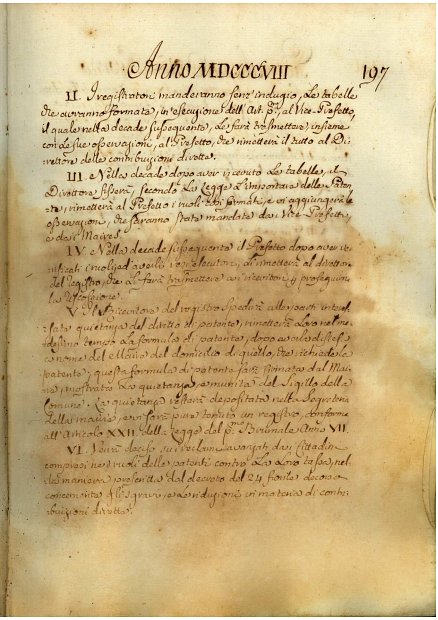 Anno MDCCCVIII 197
II. I registratori manderanno senz'indugio, Le tabelle
che avranno formate, in esecuzione dell'Art. pº, al Vice-Prefetto,
il quale nella decade susseguente, Le farà trasmettere, insieme
con Le sue osservazioni, al Prefetto, che rimetterà il tutto al Di-
rettore delle contribuzioni dirette.
III. Nella decade dopo aver ricevuto Le tabelle, il
Direttore fisserà, secondo La Legge L'importare delle Paten-
te, rimetterà al Prefetto i ruoli così formati, e vi aggiungerà le
osservazioni, che saranno state mandate dai Vice-Prefetti,
e dai Maires.
IV. Nella decade susseguente il Prefetto dopo aver ve-
rificati i ruoli, ed averli resi esecutori, rimetterà al direttore
del registro, che Li farà trasmettere ai ricevitori per proseguirne
La riscossione.
V. Il Ricevitore del registro spedirà alle parti interes-
sate quietanza del diretto di patente, rimetterà Loro nel me-
desimo tempo La formula di patente, dopo averla distesa
a nome del Maire del domicilio di quello, che richiede la
patente; questa formula di patente sarà firmata dal Mai-
re, mostrato La quietanza, e munita del Sigillo della
Comune. La quietanza resterà depositata nella Segreteria
della mairie, e vi sarà pure tenuto un registro, conforme
all'Articolo XXII. della Legge del pº Brumale Anno VII.
VI. Verrà deciso, su i reclami avanzati dai Cittadini
compresi nei ruoli delle patenti contro La Loro tassa, nel-
la maniera prescritta dal decreto del 24 fiorile
concernente gli sgravi, e Le riduzioni in materia di contri-
buzioni dirette.